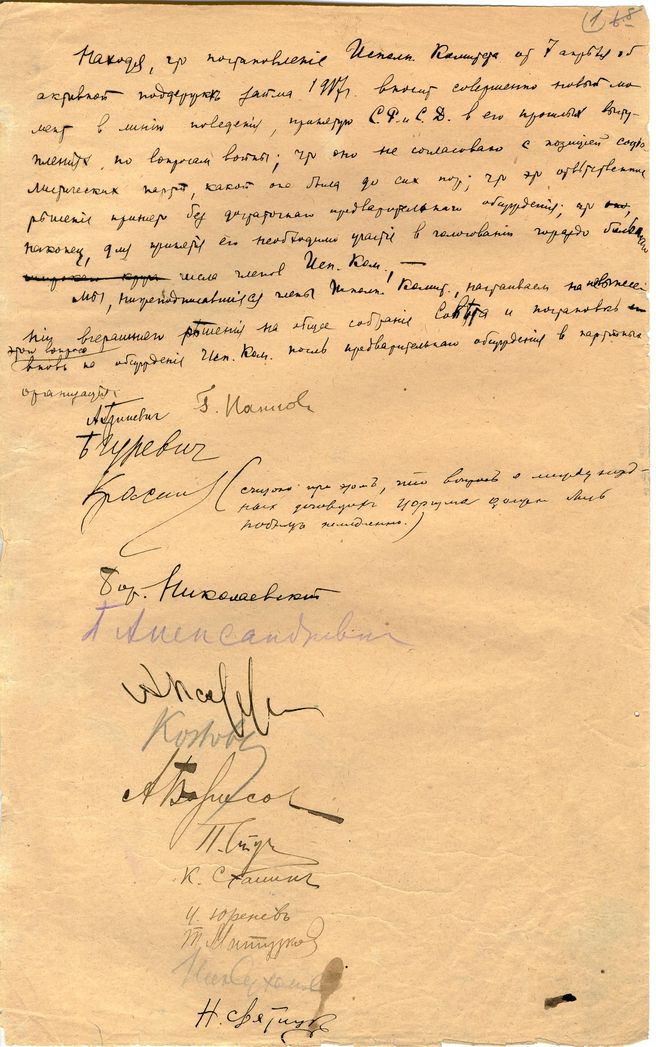 1 68
Находя, что постановленіе Исполн. Комитета от 7 апрѣля об
активной поддержкѣ займа 1917 г. вносит совершенно новый мо-
мент в линію поведенія, принятую С.Р. и С.Д. в его прошлых высту-
пленіях по вопросам войны; что оно не согласовано с позицией соціа-
листических партій, какой она была до сих пор; что это отвѣтственное
рѣшеніе принято без достаточнаго предварительнаго обсужденія; что оно,
наконец, для принятія его необходимо участіе в голосованіи гораздо большаго
числа членов Исп. Ком., —
Мы, нижеподписавшіеся члены Исполн. Комит., настаиваем на невынесе-
ніи вчерашнего рѣшенія на общее собраніе Совѣта и постановкѣ
этого вопроса
вновь на обсужденіе Исп. Ком. послѣ предварительнаго обсужденія в партійных
организаціях.
Гуревич
Красиков (считаю при этом, что вопрос о международ-
ных договорах царизма должен быть
немедленно.)
Бор. Николаевскій
П Александрович
А Борисов
П. Стучк
К. Сталин
И. Юренёвъ
Ник Суханов
Н. Святицк